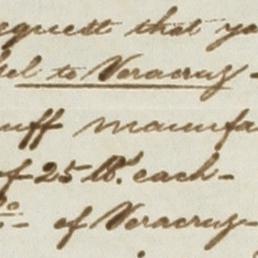 request that yo
el to Veracruz -
uff manufa
of 25 lbs. each -
of Veracruz -